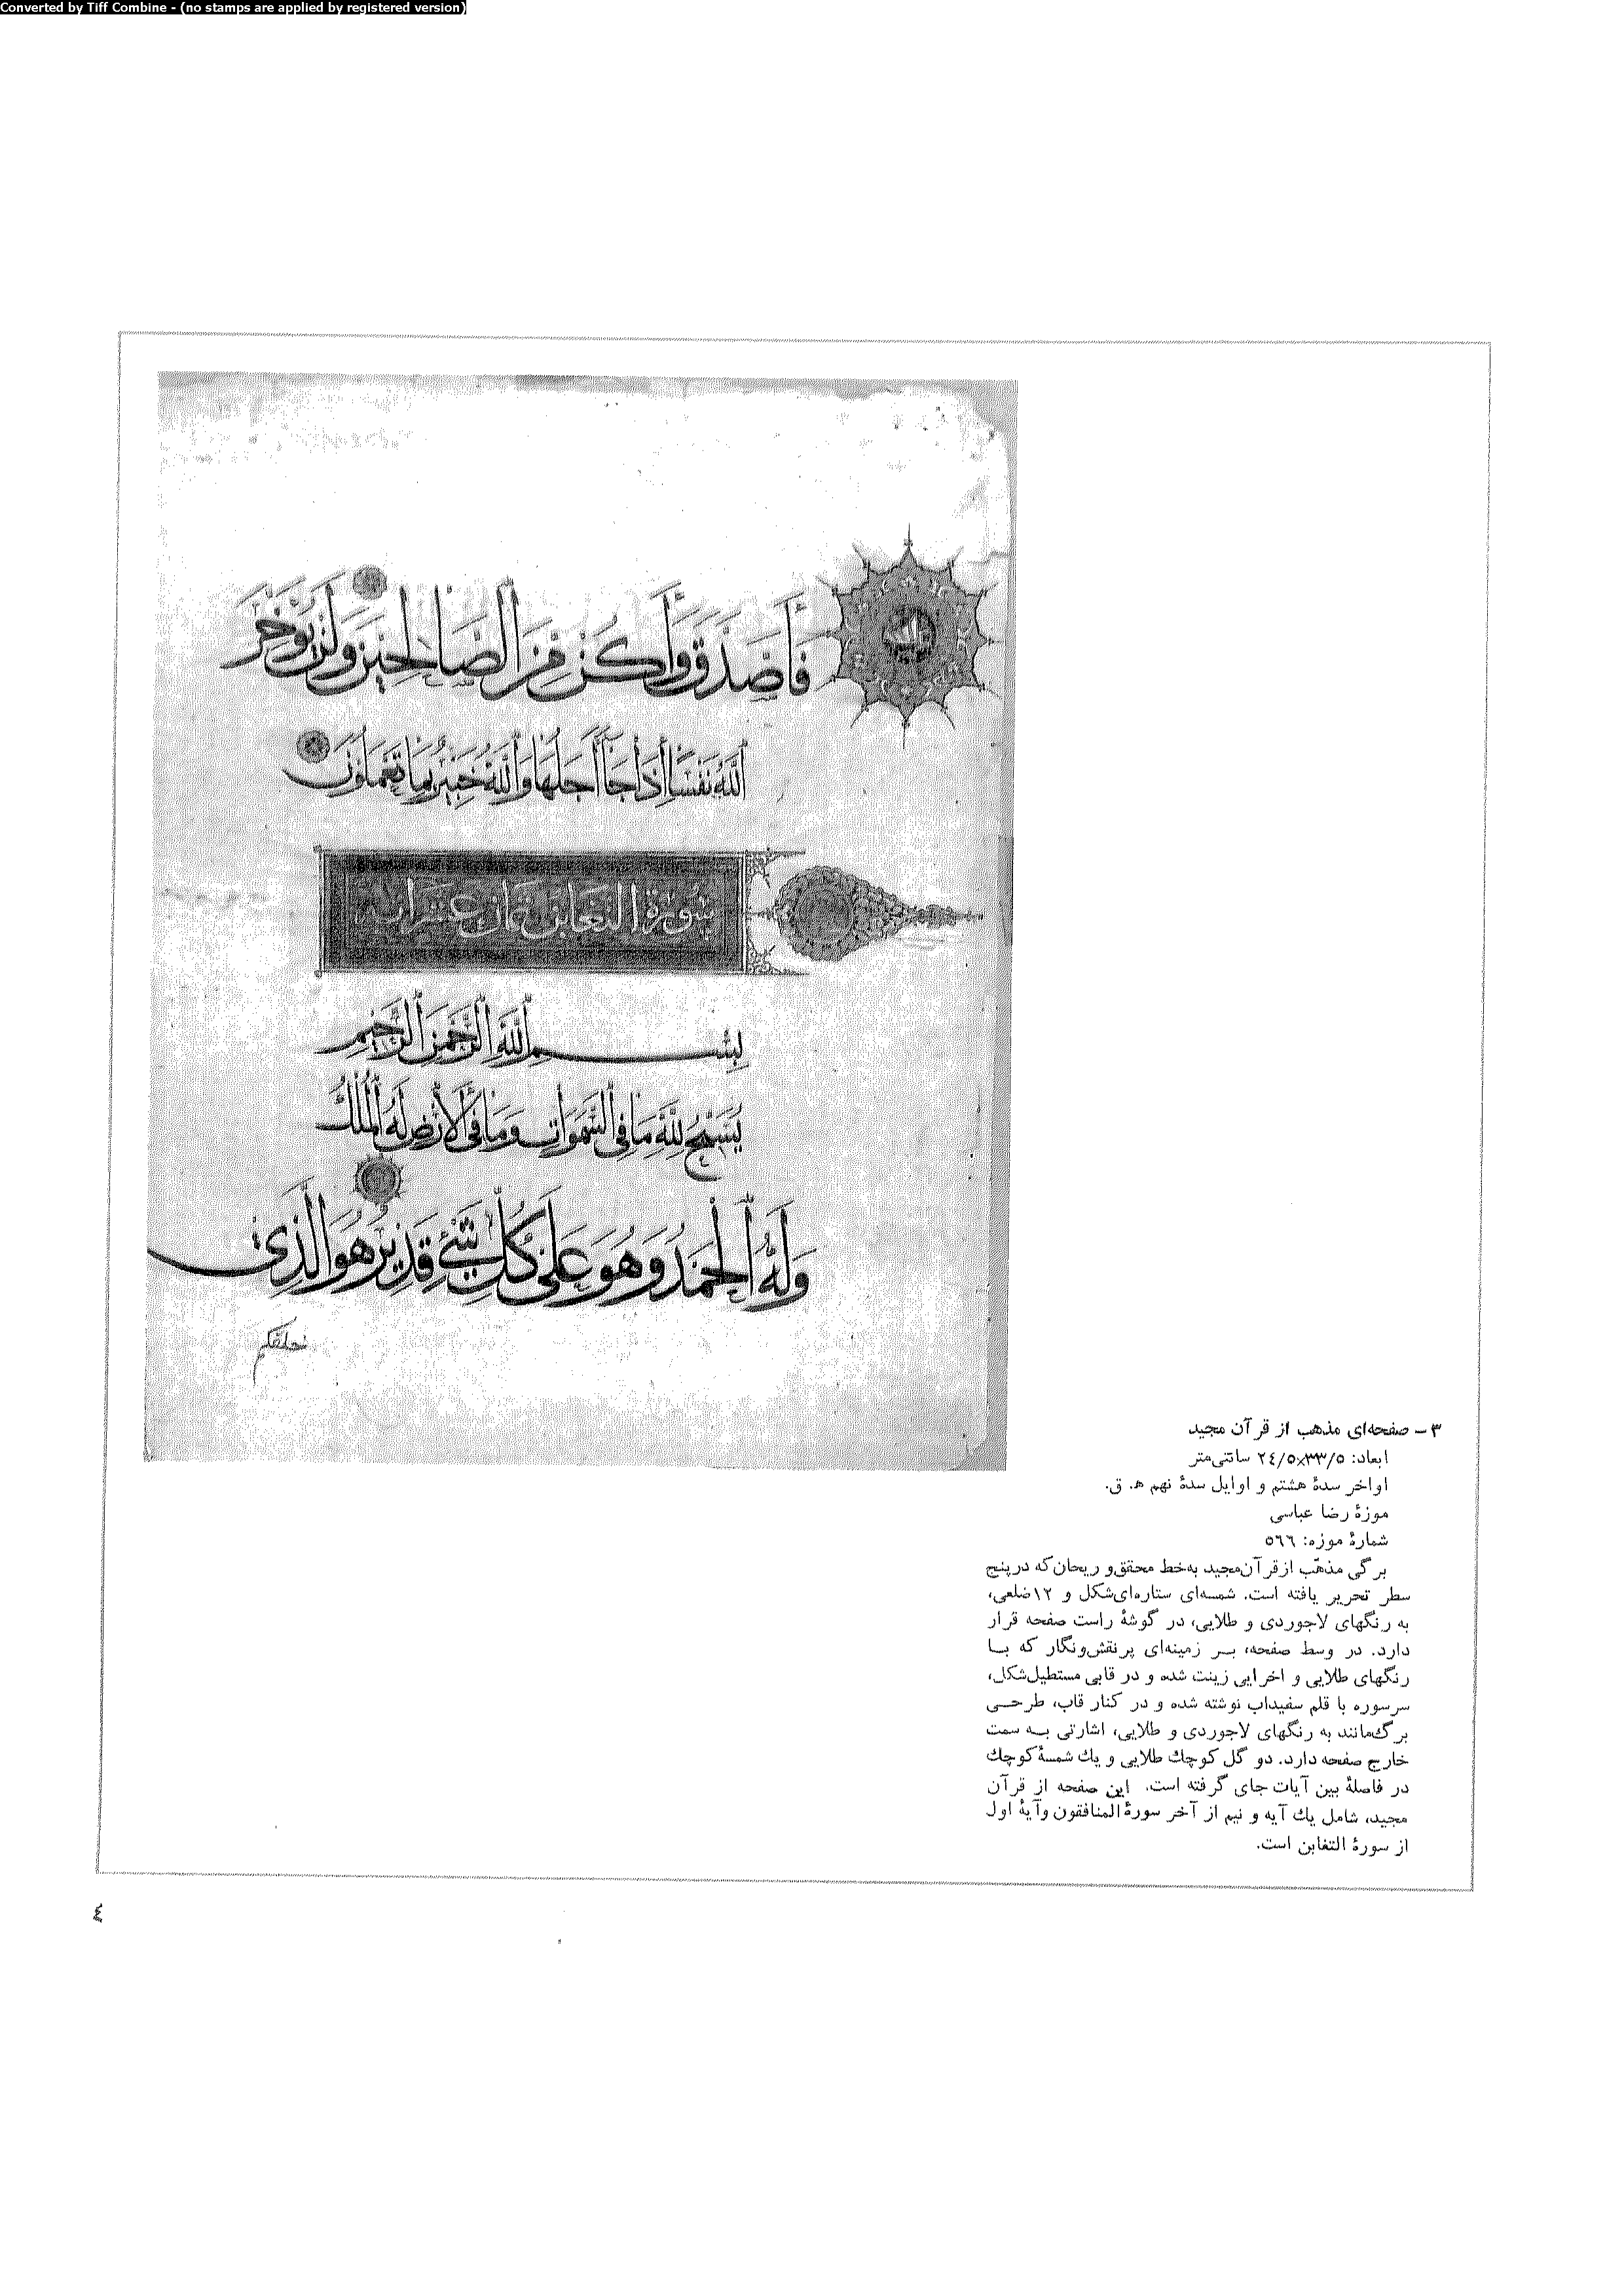 Converted by Tiff Combine - (no stamps are applied by registered version)
فَأَصَّدَّقَ وَأَكُنْ مِنَ الصَّالِحِينَ وَلَنْ يُؤَخِّرَ
اللَّهُ نَفْسًا إِذَا جَآءَ أَجَلُهَا وَاللَّهُ خَبِيرٌ بِمَا تَعْمَلُونَ
سورة التغابن ثمان عشر آية
بِسْمِ اللَّهِ الرَّحْمَنِ الرَّحِيمِ
يُسَبِّحُ لِلَّهِ مَا فِي السَّمَوَاتِ وَمَا فِي الْأَرْضِ لَهُ الْمُلْكُ
وَلَهُ الْحَمْدُ وَهُوَ عَلَى كُلِّ شَيْءٍ قَدِيرٌ هُوَ الَّذِي
خلقكم
٣ – صفحه‌ای مذهب از قرآن مجید
ابعاد: ٢٤/٥×٣٣/٥ سانتی‌متر
اواخر سدهٔ هشتم و اوایل سدهٔ نهم ه‍. ق.
موزهٔ رضا عباسی
شمارهٔ موزه: ٥٦٦
برگی مذهّب از قرآن‌مجید به‌خط محقق و ریحان که در پنج
سطر تحریر یافته است. شمسه‌ای ستاره‌ای‌شکل و ١٢ضلعی،
به رنگهای لاجوردی و طلایی، در گوشهٔ راست صفحه قرار
دارد. در وسط صفحه، بــر زمینه‌ای پرنقش‌ونگار که بــا
رنگهای طلایی و اخرایی زینت شده و در قابی مستطیل‌شکل،
سرسوره با قلم سفیداب نوشته شده و در کنار قاب، طرحــی
برگ‌مانند به رنگهای لاجوردی و طلایی، اشارتی بــه سمت
خارج صفحه دارد. دو گل کوچك طلایی و یك شمسهٔ کوچك
در فاصلهٔ بین آیات جای گرفته است. این صفحه از قرآن
مجید، شامل یك آیه و نیم از آخر سورهٔ المنافقون و آیهٔ اول
از سورهٔ التغابن است.
٤